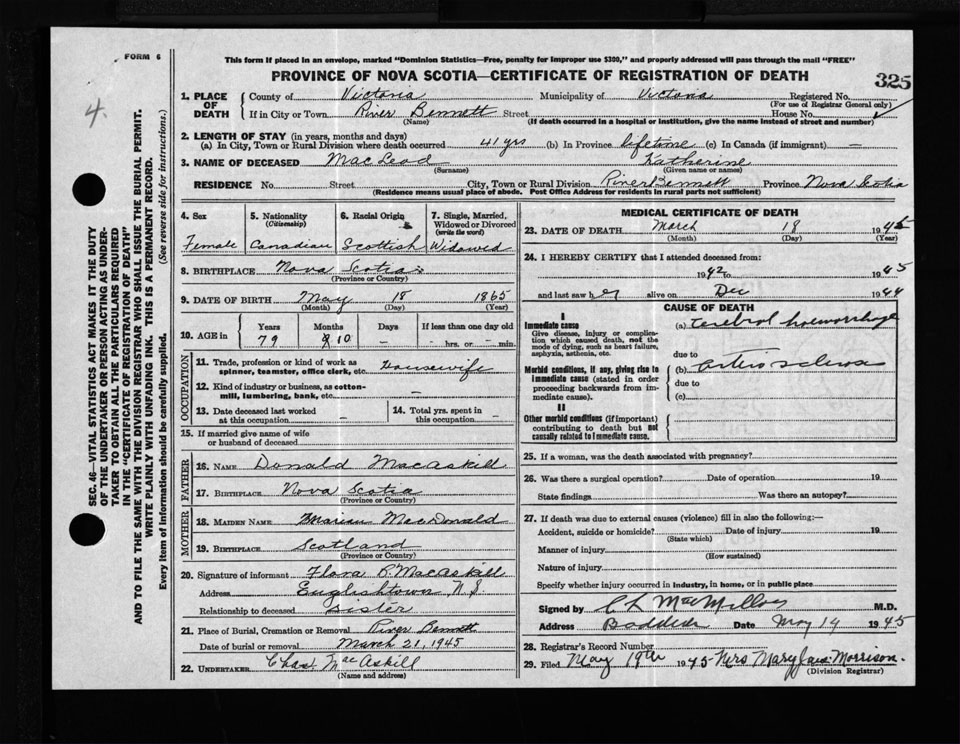 FORM 6
4.
325
This form if placed in an envelope, marked "Dominion Statistics—Free, penalty for improper use $300," and properly addressed will pass through the mail "FREE"
PROVINCE OF NOVA SCOTIA—CERTIFICATE OF REGISTRATION OF DEATH
SEC. 46—VITAL STATISTICS ACT MAKES IT THE DUTY
OF THE UNDERTAKER OR PERSON ACTING AS UNDER-
TAKER TO OBTAIN ALL THE PARTICULARS REQUIRED
IN THE "CERTIFICATE OF REGISTRATION OF DEATH"
AND TO FILE THE SAME WITH THE DIVISION REGISTRAR WHO SHALL ISSUE THE BURIAL PERMIT.
WRITE PLAINLY WITH UNFADING INK. THIS IS A PERMANENT RECORD.
Every item of information should be carefully supplied. (See reverse side for instructions.)
1. PLACE OF DEATH County of Victoria Municipality of Victoria Registered No.
(For use of Registrar General only)
If in City or Town River Bennett Street House No.
(Name) (If death occurred in a hospital or institution, give the name instead of street and number)
2. LENGTH OF STAY (in years, months and days)
(a) In City, Town or Rural Division where death occurred 41 yrs (b) In Province lifetime (c) In Canada (if immigrant) —
3. NAME OF DECEASED MacLeod Katherine
(Surname) (Given name or names)
RESIDENCE No. Street City, Town or Rural Division River Bennett Province Nova Scotia
(Residence means usual place of abode. Post Office Address for residents in rural parts not sufficient)
4. Sex 5. Nationality (Citizenship) 6. Racial Origin 7. Single, Married, Widowed or Divorced (write the word)
Female Canadian Scottish Widowed
8. BIRTHPLACE Nova Scotia
(Province or Country)
9. DATE OF BIRTH May 18 1865
(Month) (Day) (Year)
10. AGE in Years Months Days If less than one day old
79 10 — — hrs. or — min.
OCCUPATION
11. Trade, profession or kind of work as
spinner, teamster, office clerk, etc. Housewife
12. Kind of industry or business, as cotton-
mill, lumbering, bank, etc. —
13. Date deceased last worked
at this occupation —
14. Total yrs. spent in
this occupation —
15. If married give name of wife
or husband of deceased
FATHER
16. NAME Donald MacAskill
17. BIRTHPLACE Nova Scotia
(Province or Country)
MOTHER
18. MAIDEN NAME Marian MacDonald
19. BIRTHPLACE Scotland
(Province or Country)
20. Signature of informant Flora B. MacAskill
Address Englishtown N.S.
Relationship to deceased Sister
21. Place of Burial, Cremation or Removal River Bennett
Date of burial or removal March 21, 1945
22. UNDERTAKER Chas. MacAskill
(Name and address)
MEDICAL CERTIFICATE OF DEATH
23. DATE OF DEATH March 18 1945
(Month) (Day) (Year)
24. I HEREBY CERTIFY that I attended deceased from:
1942 to 1945
and last saw her alive on Dec 1944
CAUSE OF DEATH
I
Immediate cause
Give disease, injury or complica-
tion which caused death, not the
mode of dying, such as heart failure,
asphyxia, asthenia, etc.
(a) Cerebral haemorrhage
due to
Morbid conditions, if any, giving rise to
immediate cause (stated in order
proceeding backwards from im-
mediate cause).
(b) arteriosclerosis
due to
(c)
II
Other morbid conditions (if important)
contributing to death but not
causally related to immediate cause.
25. If a woman, was the death associated with pregnancy?
26. Was there a surgical operation? Date of operation 19
State findings Was there an autopsy?
27. If death was due to external causes (violence) fill in also the following:—
Accident, suicide or homicide? Date of injury 19
(State which)
Manner of injury
(How sustained)
Nature of injury
Specify whether injury occurred in industry, in home, or in public place
Signed by C L MacMillan M.D.
Address Baddeck Date May 14 1945
28. Registrar's Record Number
29. Filed May 19th 1945 Mrs Mary Jane Morrison.
(Division Registrar)